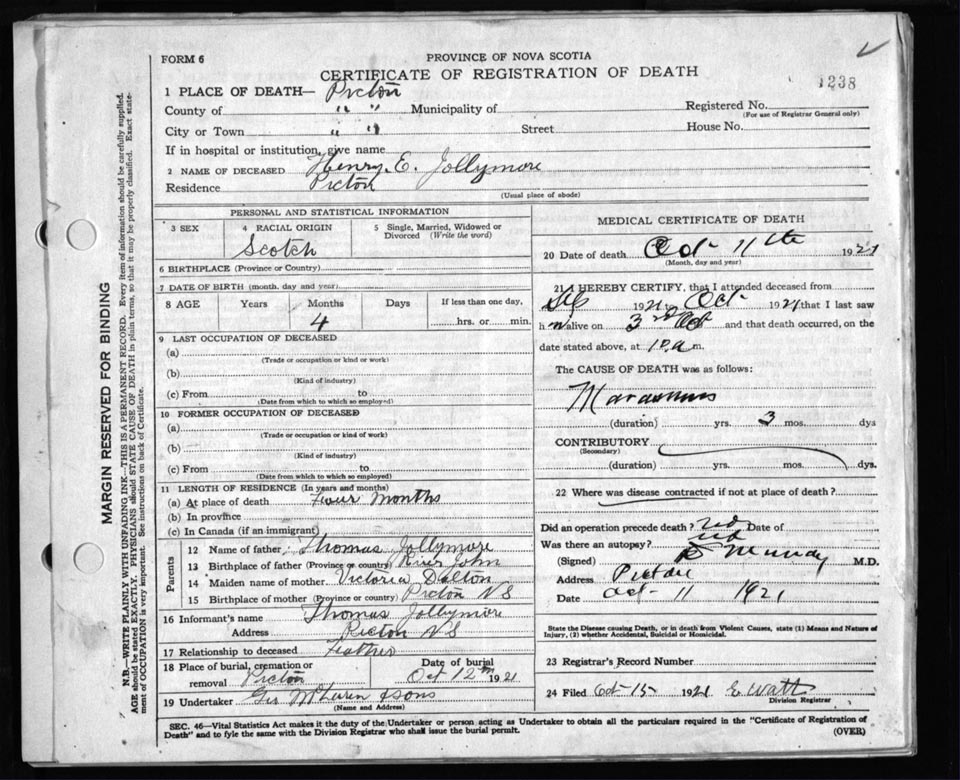 FORM 6
PROVINCE OF NOVA SCOTIA
CERTIFICATE OF REGISTRATION OF DEATH
1238
1 PLACE OF DEATH— Picton
County of " " Municipality of Registered No.
(For use of Registrar General only)
City or Town " " Street House No.
If in hospital or institution, give name
2 NAME OF DECEASED Henry. E. Jollymore
Residence Picton
(Usual place of abode)
PERSONAL AND STATISTICAL INFORMATION
3 SEX 4 RACIAL ORIGIN 5 Single, Married, Widowed or Divorced (Write the word)
Scotch
6 BIRTHPLACE (Province or Country)
7 DATE OF BIRTH (month, day and year)
8 AGE Years Months Days If less than one day,
4 hrs. or min.
9 LAST OCCUPATION OF DECEASED
(a)
(Trade or occupation or kind of work)
(b)
(Kind of industry)
(c) From to
(Date from which to which so employed)
10 FORMER OCCUPATION OF DECEASED
(a)
(Trade or occupation or kind of work)
(b)
(Kind of industry)
(c) From to
(Date from which to which so employed)
11 LENGTH OF RESIDENCE (In years and months)
(a) At place of death Four Months
(b) In province
(c) In Canada (if an immigrant)
Parents
12 Name of father Thomas Jollymore
13 Birthplace of father (Province or country) River John
14 Maiden name of mother Victoria Dalton
15 Birthplace of mother (Province or country) Picton N S
16 Informant's name Thomas Jollymore
Address Picton N S
17 Relationship to deceased Father
18 Place of burial, cremation or removal Picton
Date of burial Oct 12th 1921
19 Undertaker Geo McLaren & sons
(Name and Address)
MEDICAL CERTIFICATE OF DEATH
20 Date of death Oct 11th 1921
(Month, day and year)
21 I HEREBY CERTIFY, that I attended deceased from
Sep 1921 to Oct 1921 that I last saw
h m alive on 3rd Oct and that death occurred, on the
date stated above, at 10 a m.
The CAUSE OF DEATH was as follows:
Marasmus
(duration) yrs. 3 mos. dys
CONTRIBUTORY
(Secondary)
(duration) yrs. mos. dys.
22 Where was disease contracted if not at place of death?
Did an operation precede death? no Date of
Was there an autopsy? no
(Signed) Munday M.D.
Address Pictou
Date Oct 11 1921
State the Disease causing Death, or in death from Violent Causes, state (1) Means and Nature of
Injury, (2) whether Accidental, Suicidal or Homicidal.
23 Registrar's Record Number
24 Filed Oct 15 1921 E Watt
Division Registrar
SEC. 46—Vital Statistics Act makes it the duty of the Undertaker or person acting as Undertaker to obtain all the particulars required in the "Certificate of Registration of
Death" and to fyle the same with the Division Registrar who shall issue the burial permit.
(OVER)
MARGIN RESERVED FOR BINDING
N.B.—WRITE PLAINLY WITH UNFADING INK—THIS IS A PERMANENT RECORD. Every item of information should be carefully supplied.
AGE should be stated EXACTLY. PHYSICIANS should STATE CAUSE OF DEATH in plain terms, so that it may be properly classified. Exact state-
ment of OCCUPATION is very important. See instructions on back of Certificate.